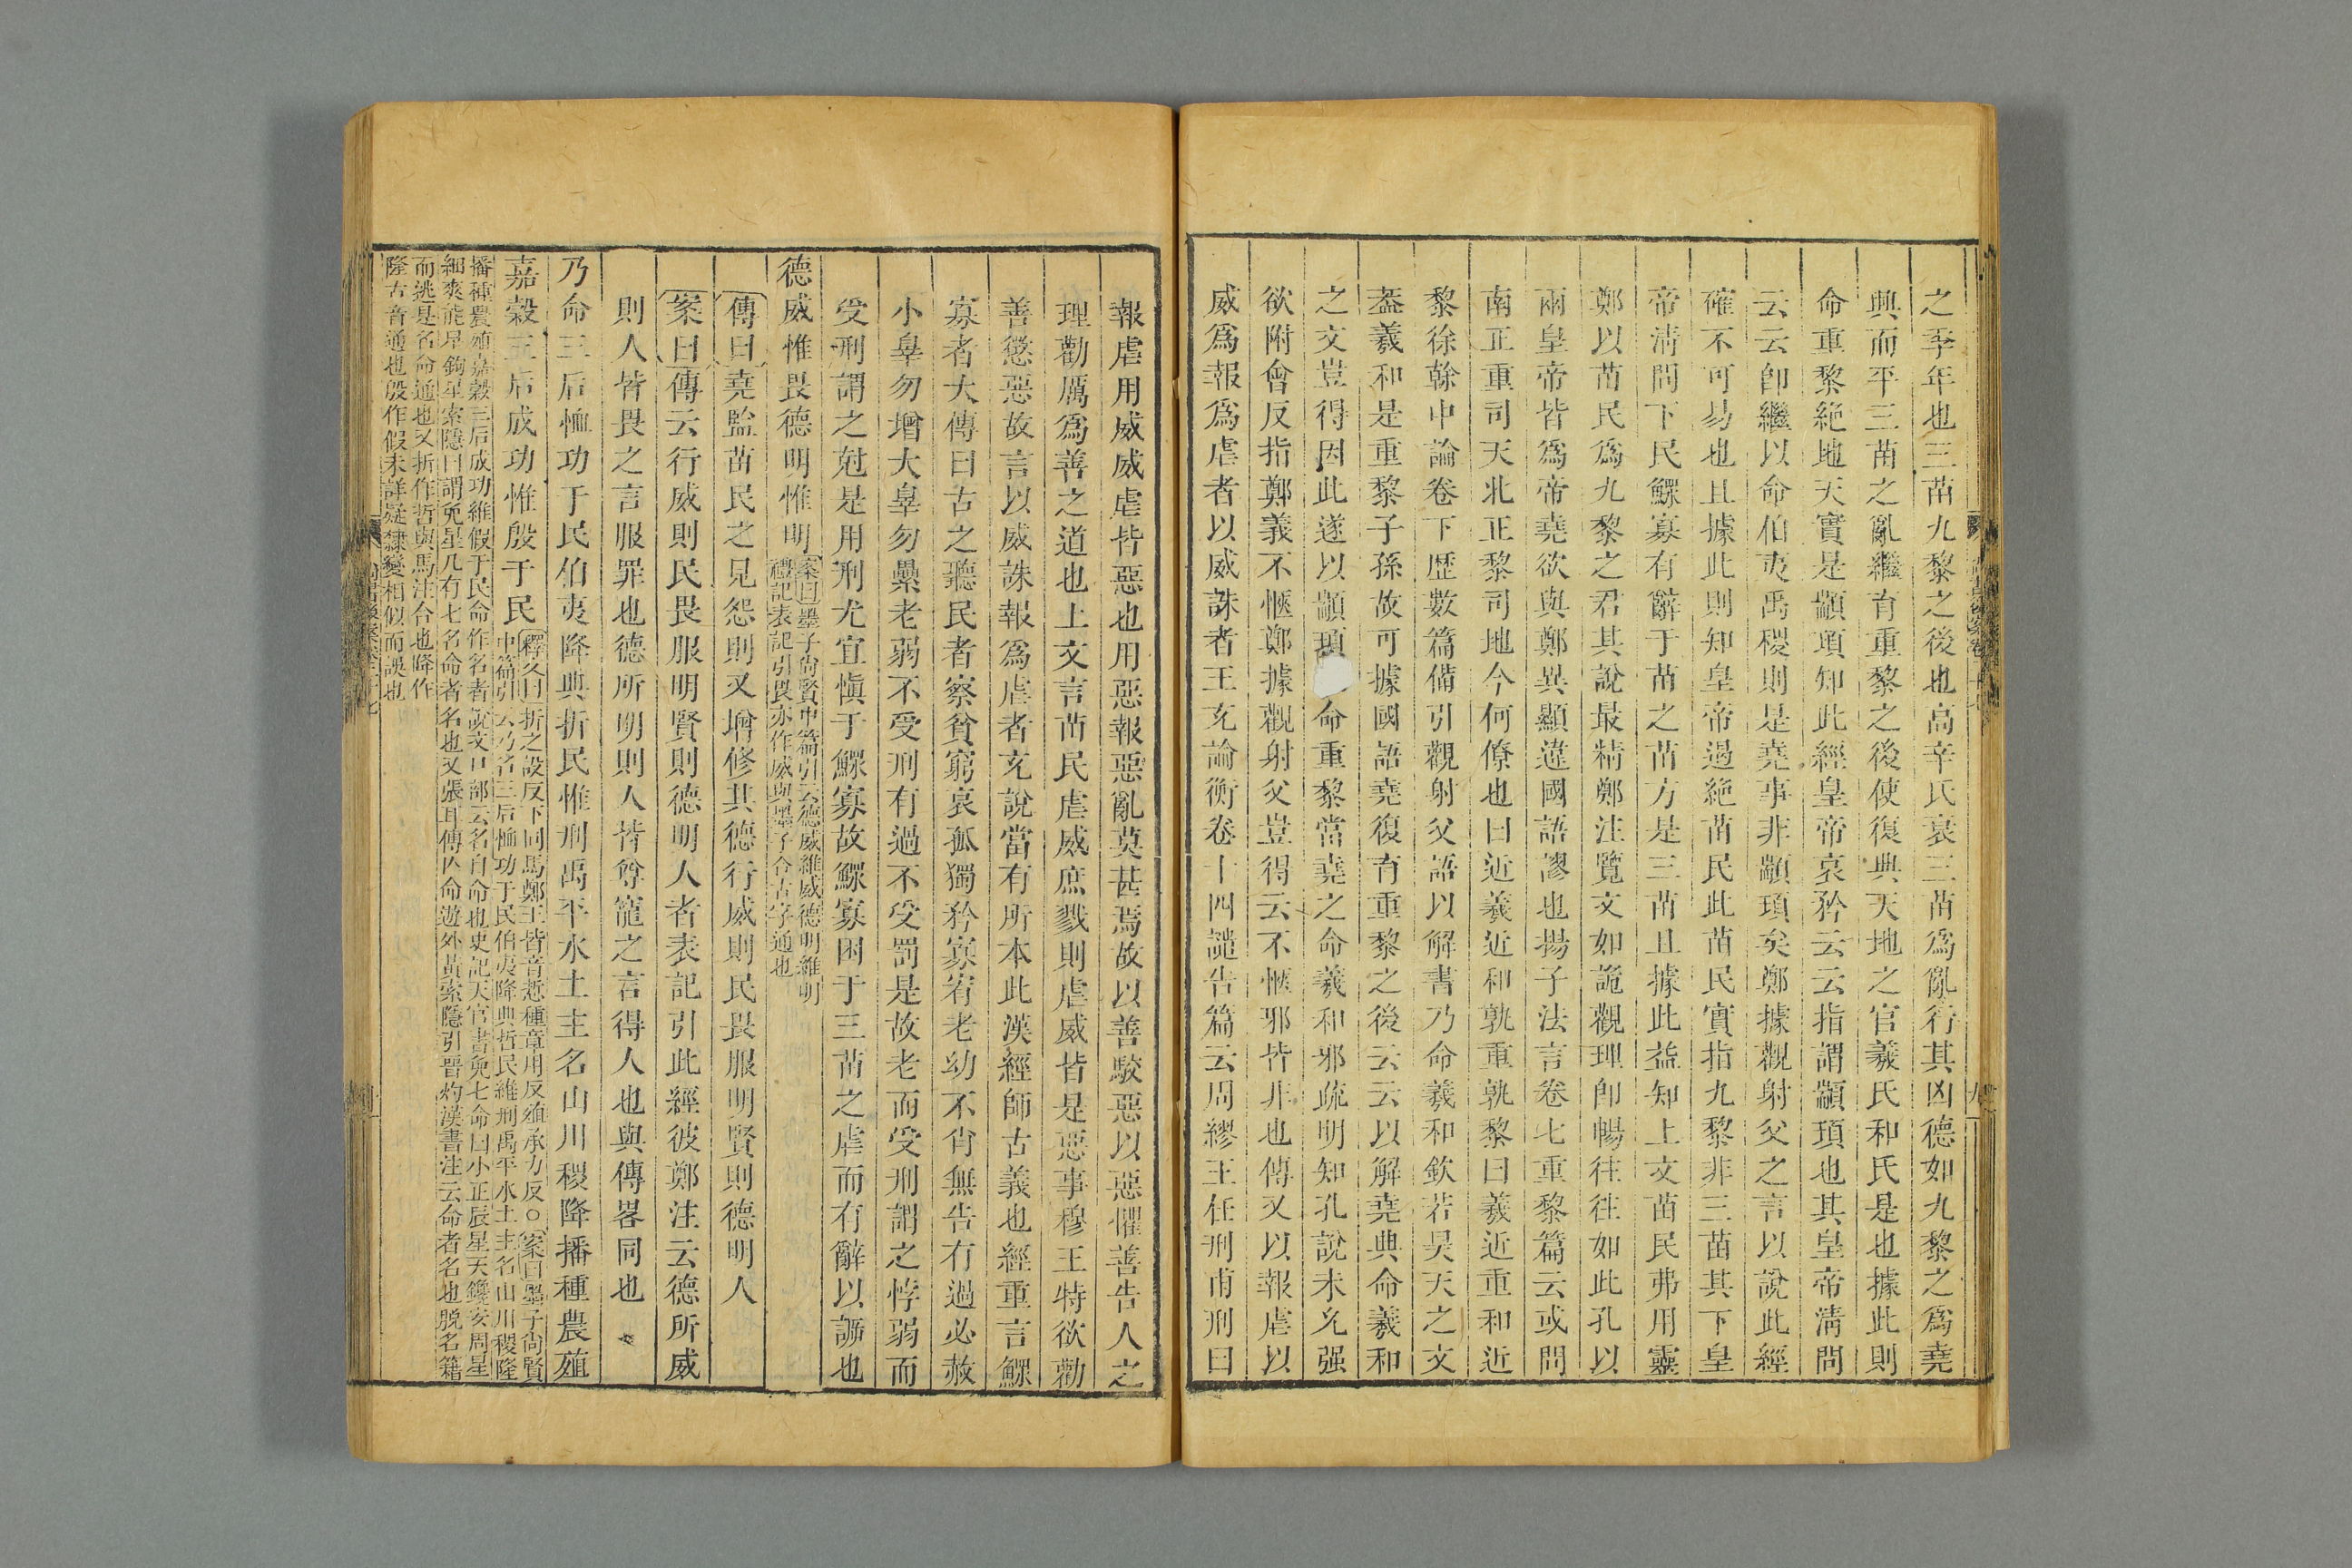 之季年也三苗九黎之後也高辛氏衰三苗爲亂行其凶德如九黎之爲堯
興而平三苗之亂繼育重黎之後使復典天地之官羲氏和氏是也據此則
命重黎絶地天實是顓頊知此經皇帝哀矜云云指謂顓頊也其皇帝淸問
云云卽繼以命伯夷禹稷則是堯事非顓頊矣鄭據觀射父之言以說此經
確不可易也且據此則知皇帝遏絶苗民此苗民實指九黎非三苗其下皇
帝淸問下民鰥寡有辭于苗之苗方是三苗且據此益知上文苗民弗用靈
鄭以苗民爲九黎之君其說最精鄭注覽文如詭觀理卽暢往往如此孔以
兩皇帝皆爲帝堯欲與鄭異顯違國語謬也揚子法言卷七重黎篇云或問
南正重司天北正黎司地今何僚也曰近羲近和孰重孰黎曰羲近重和近
黎徐幹中論卷下歷數篇備引觀射父語以解書乃命羲和欽若昊天之文
蓋羲和是重黎子孫故可據國語堯復育重黎之後云云以解堯典命羲和
之文豈得因此遂以顓頊命重黎當堯之命羲和邪疏明知孔說未允强
欲附會反指鄭義不愜鄭據觀射父豈得云不愜邪皆非也傳又以報虐以
威爲報爲虐者以威誅者王充論衡卷十四譴告篇云周繆王任刑甫刑曰
報虐用威威虐皆惡也用惡報惡亂莫甚焉故以善駮惡以惡懼善告人之
理勸厲爲善之道也上文言苗民虐威庶戮則虐威皆是惡事穆王特欲勸
善懲惡故言以威誅報爲虐者充說當有所本此漢經師古義也經重言鰥
寡者大傳曰古之聽民者察貧窮哀孤獨矜寡宥老幼不肖無告有過必赦
小辠勿增大辠勿纍老弱不受刑有過不受罰是故老而受刑謂之悖弱而
受刑謂之尅是用刑尤宜愼于鰥寡故鰥寡困于三苗之虐而有辭以諦也
德威惟畏德明惟明案曰墨子尚賢中篇引云德威維威德明維明
禮記表記引畏亦作威與墨子合古字通也
傳曰堯監苗民之見怨則又增修其德行威則民畏服明賢則德明人
案曰傳云行威則民畏服明賢則德明人者表記引此經彼鄭注云德所威
則人皆畏之言服罪也德所明則人皆尊寵之言得人也與傳畧同也
乃命三后恤功于民伯夷降典折民惟刑禹平水土主名山川稷降播種農殖
嘉穀三后成功惟殷于民釋文曰折之設反下同馬鄭王皆音悊種章用反殖承力反○案曰墨子尚賢
中篇引云乃名三后恤功于民伯夷降典哲民維刑禹平水土主名山川稷隆
播種農殖嘉穀三后成功維假于民命作名者說文口部云名自命也史記天官書免七命曰小正辰星天欃安周星
細爽能星鉤星索隱曰謂免星凡有七名命者名也又張耳傳亾命遊外黃索隱引晉灼漢書注云命者名也脫名籍
而逃是名命通也又折作哲與馬注合也降作
隆古音通也殷作假未詳疑隸變相似而誤也